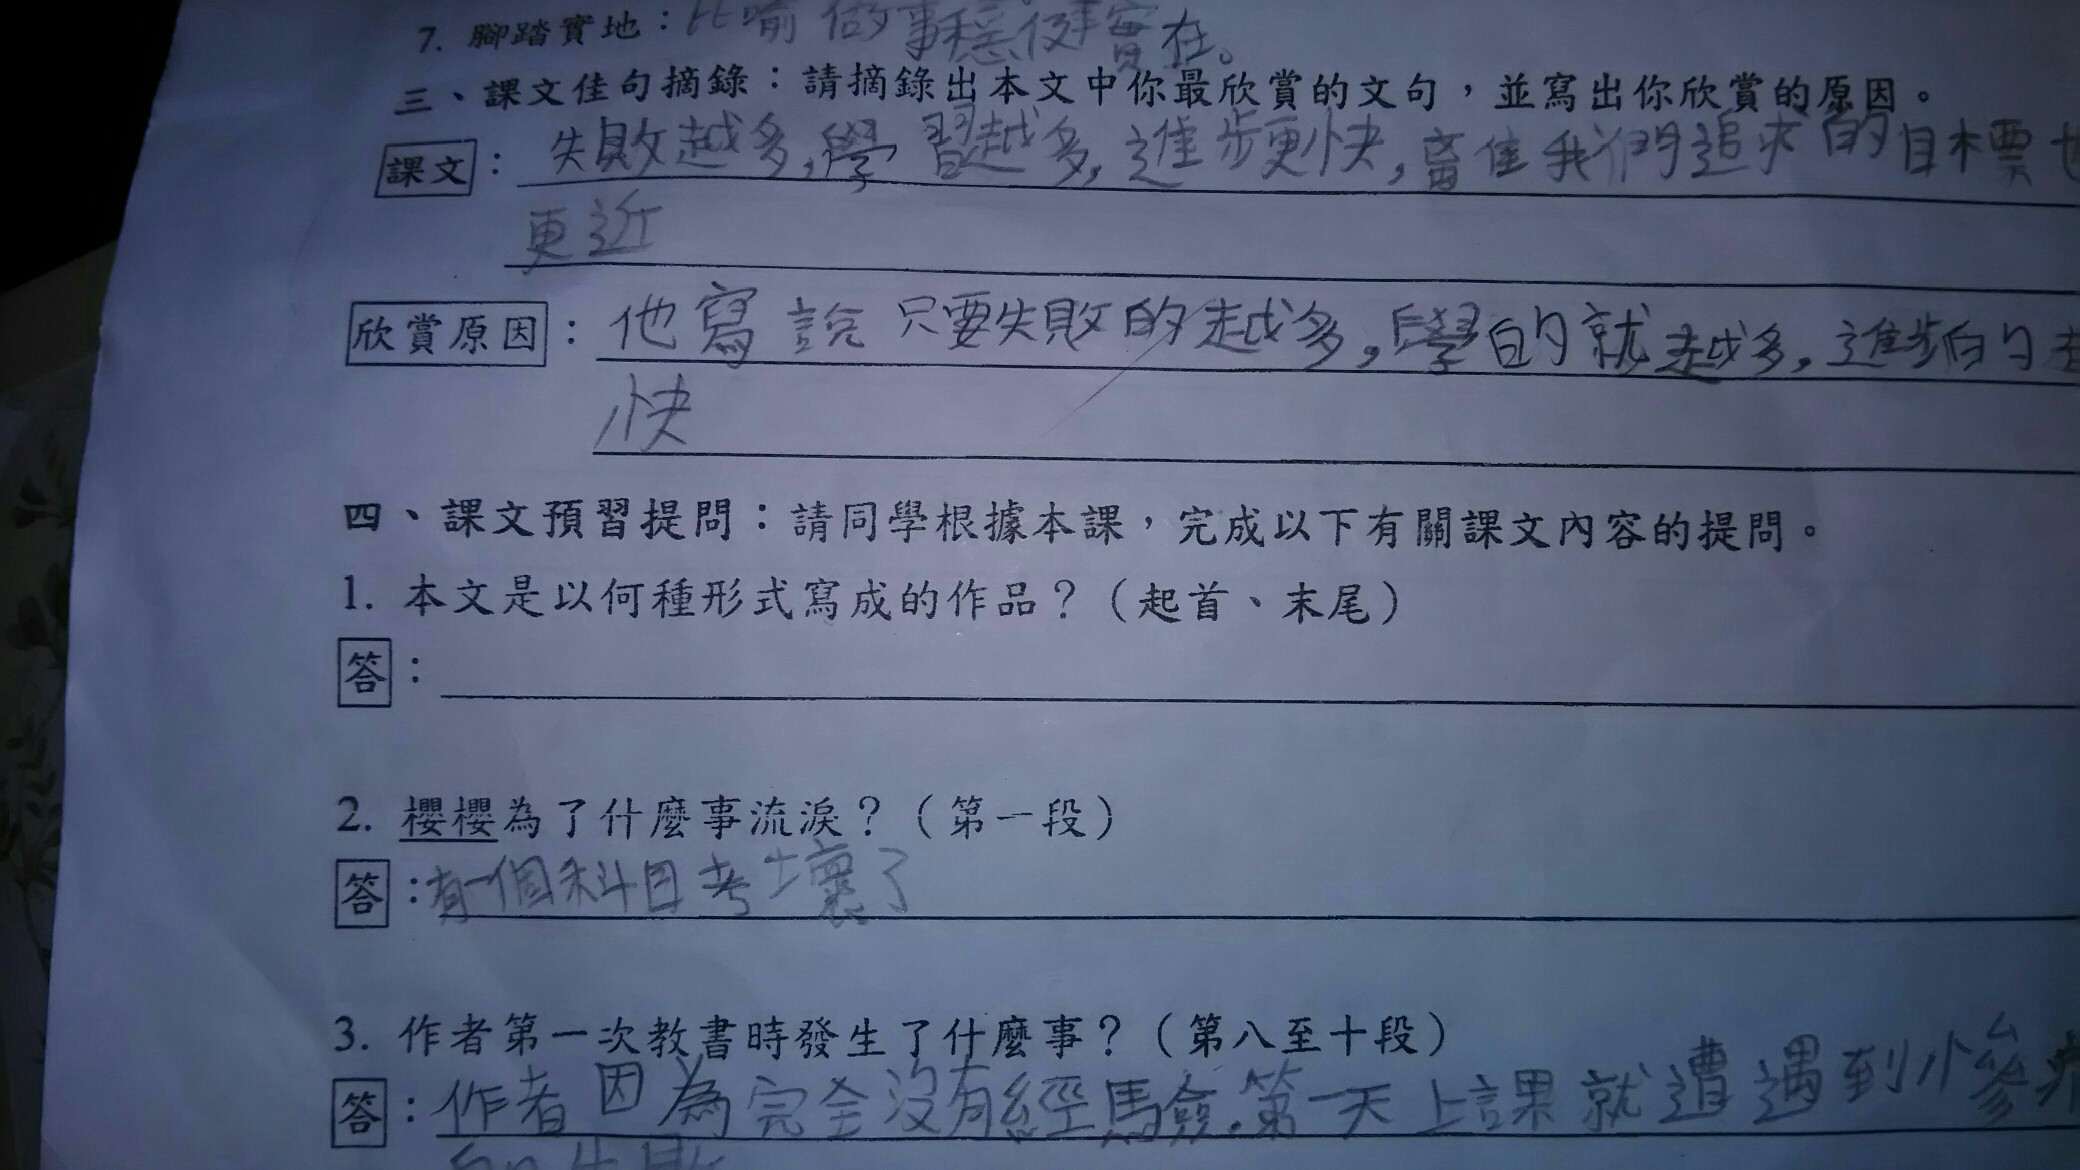 7. 腳踏實地：比喻做事穩健實在。
三、課文佳句摘錄：請摘錄出本文中你最欣賞的文句，並寫出你欣賞的原因。
課文：失敗越多,學習越多,進步更快,當佳我們追求的目標也
更近
欣賞原因：他寫說只要失敗的越多,學的就越多,進步的越
快
四、課文預習提問：請同學根據本課，完成以下有關課文內容的提問。
1. 本文是以何種形式寫成的作品？（起首、末尾）
答：
2. 櫻櫻為了什麼事流淚？（第一段）
答：有一個科目考壞了
3. 作者第一次教書時發生了什麼事？（第八至十段）
答：作者因為完全沒有經驗.第一天上課就遭遇到慘痛
的失敗